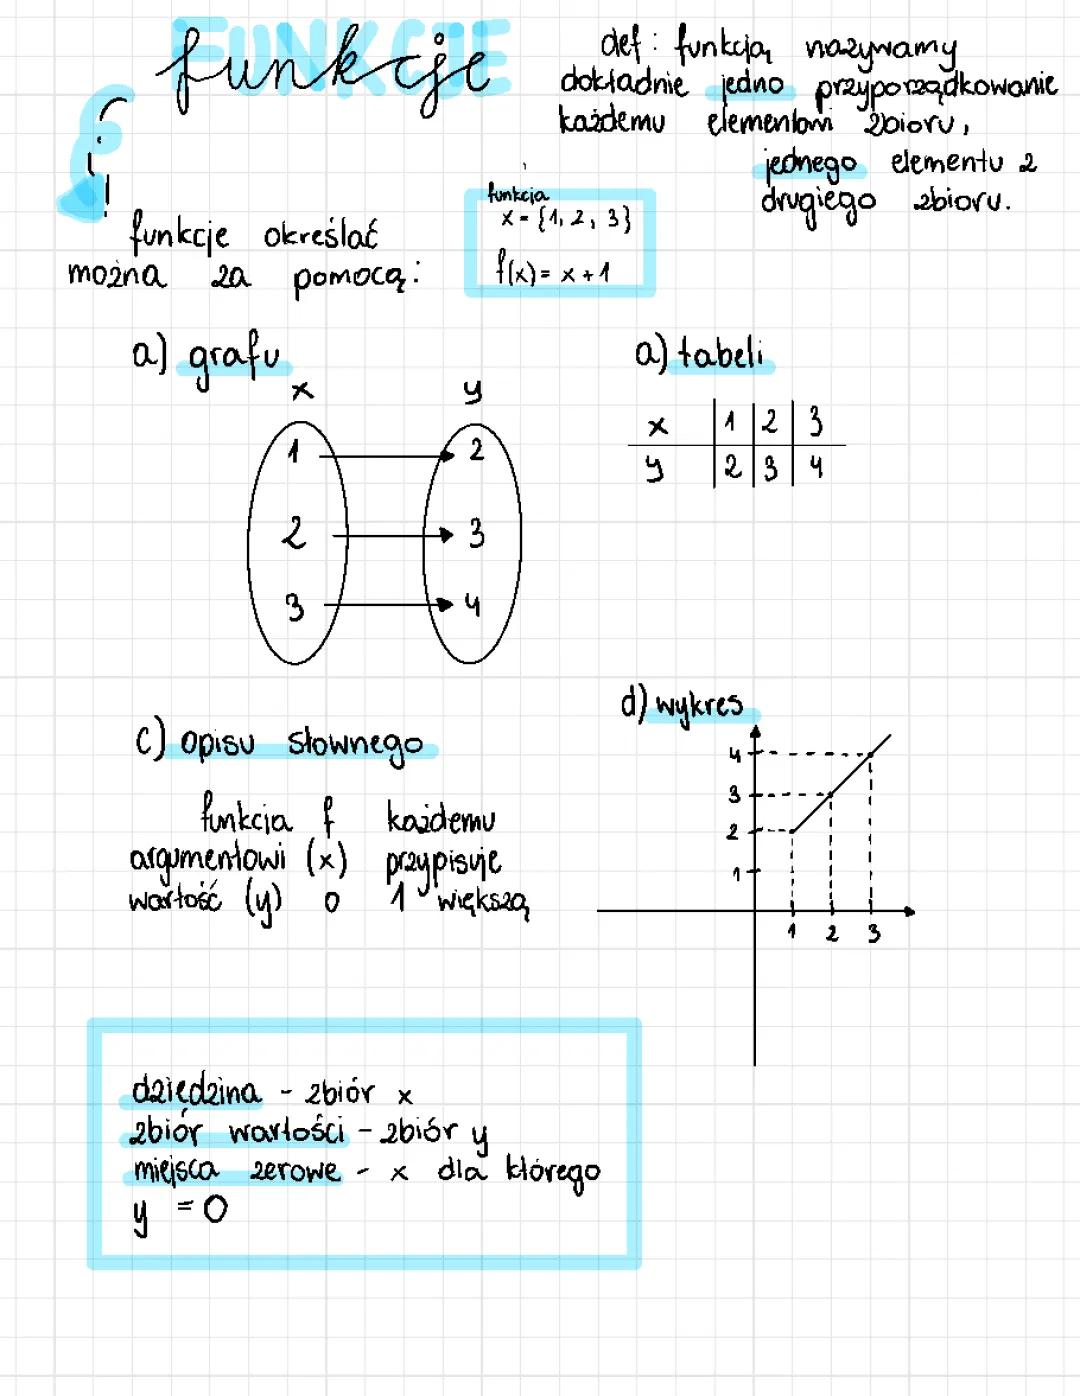 FUNKCJE
funkcje
def: funkcją nazywamy
dokładnie jedno przyporządkowanie
każdemu elementowi zbioru,
jednego elementu z
drugiego zbioru.
funkcje określać
można za pomocą:
funkcja
x = {1, 2, 3}
f(x) = x + 1
a) grafu
x y
1 2
2 3
3 4
a) tabeli
x 1 2 3
y 2 3 4
c) opisu słownego
funkcja f każdemu
argumentowi (x) przypisuje
wartość (y) o 1 większą
d) wykres
4
3
2
1
1 2 3
dziedzina - zbiór x
zbiór wartości - zbiór y
miejsca zerowe - x dla którego
y = 0